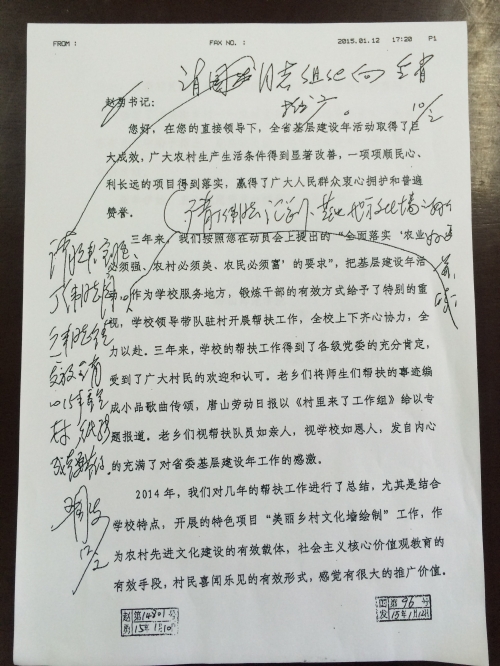 FROM : FAX NO. : 2015.01.12 17:20 P1
请 同志 向全省
推广。
10/2
赵勇书记：
您好，在您的直接领导下，全省基层建设年活动取得了巨
大成效，广大农村生产生活条件得到显著改善，一项项顺民心、
利长远的项目得到落实，赢得了广大人民群众衷心拥护和普遍
赞誉。
三年来，我们按照您在动员会上提出的“全面落实‘农业
必须强、农村必须美、农民必须富’的要求”，把基层建设年活
动，作为学校服务地方，锻炼干部的有效方式给予了特别的重
视，学校领导带队驻村开展帮扶工作，全校上下齐心协力，全
力以赴。三年来，学校的帮扶工作得到了各级党委的充分肯定，
受到了广大村民的欢迎和认可。老乡们将师生们帮扶的事迹编
成小品歌曲传颂，唐山劳动日报以《村里来了工作组》给以专
题报道。老乡们视帮扶队员如亲人，视学校如恩人，发自内心
的充满了对省委基层建设年工作的感激。
2014年，我们对几年的帮扶工作进行了总结，尤其是结合
学校特点，开展的特色项目“美丽乡村文化墙绘制”工作，作
为农村先进文化建设的有效载体，社会主义核心价值观教育的
有效手段，村民喜闻乐见的有效形式，感觉有很大的推广价值。
12/2
赵勇 第14801号
15年1月10日
第96号
发 15年1月12日